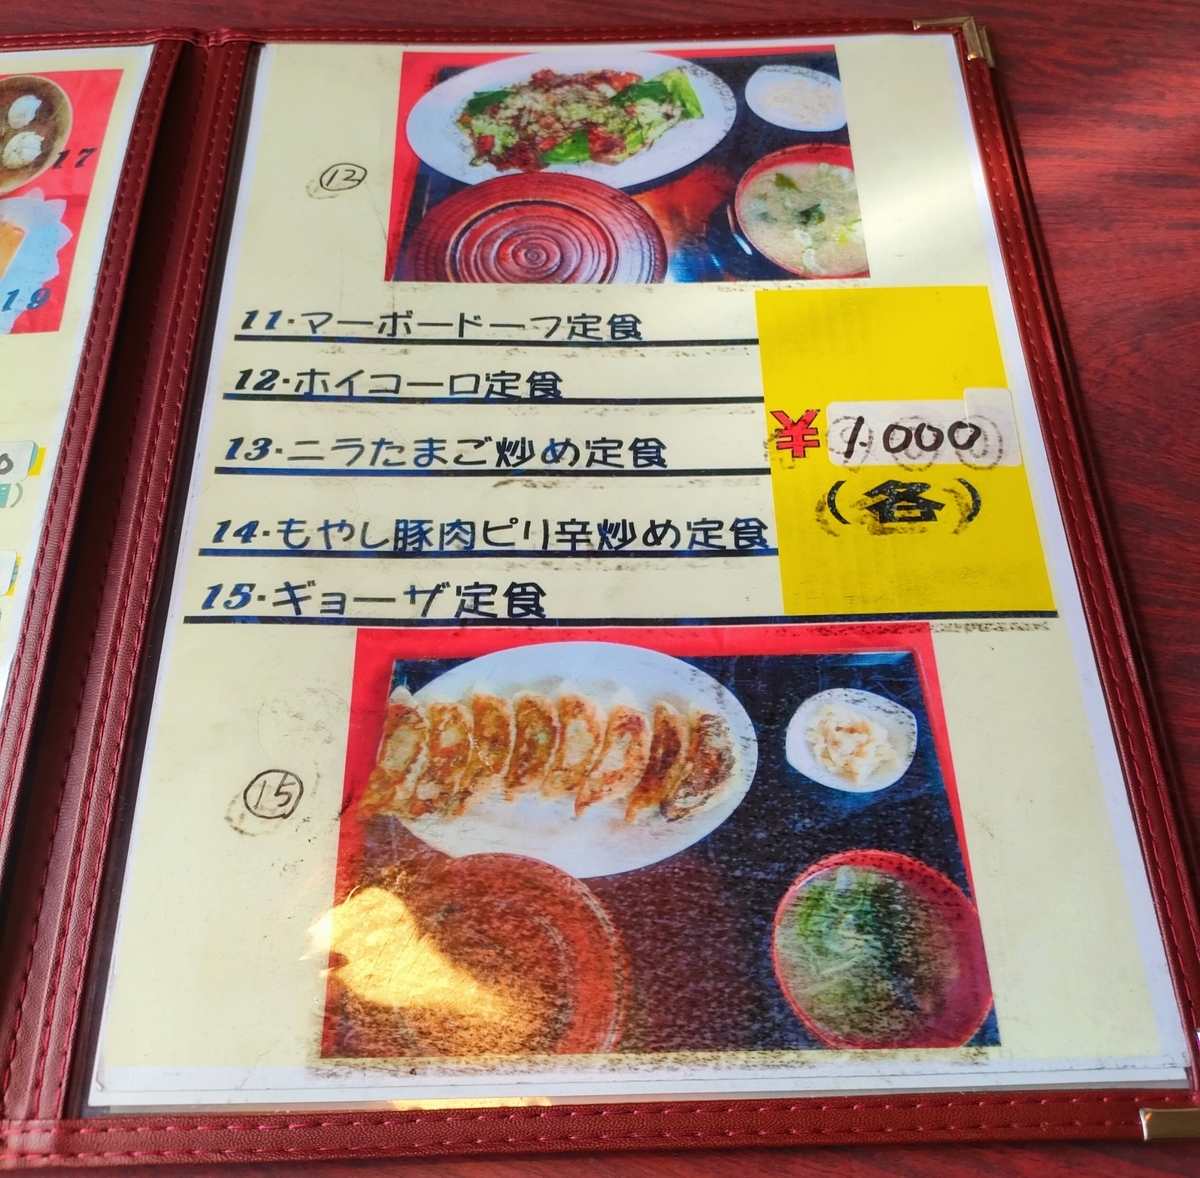 17
19
⑫
11・マーボードーフ定食
12・ホイコーロ定食
13・ニラたまご炒め定食
¥1.000
(各)
14・もやし豚肉ピリ辛炒め定食
15・ギョーザ定食
⑮